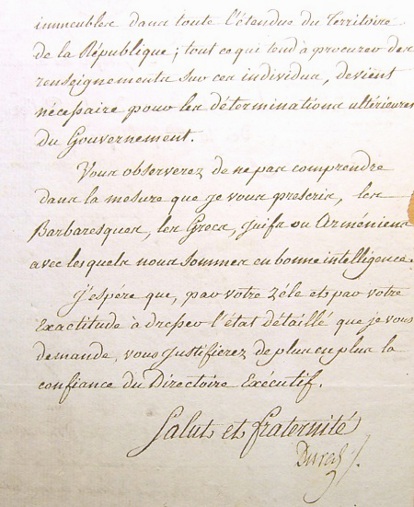 immeubles dans toute l'étendue du Territoire
de la République ; tout ce qui tend à procurer des
renseignements sur ces individus, devient
nécessaire pour les déterminations ultérieures
du Gouvernement.
Vous observerez de ne pas comprendre
dans la mesure que je vous prescris, les
Barbaresques, les Grecs, Juifs ou Arméniens
avec lesquels nous sommes en bonne intelligence.
J'espére que, par votre Zéle et par votre
Exactitude à dresser l'état détaillé que je vous
demande, vous justifierez de plus en plus la
confiance du Directoire Exécutif.
Salut et fraternité